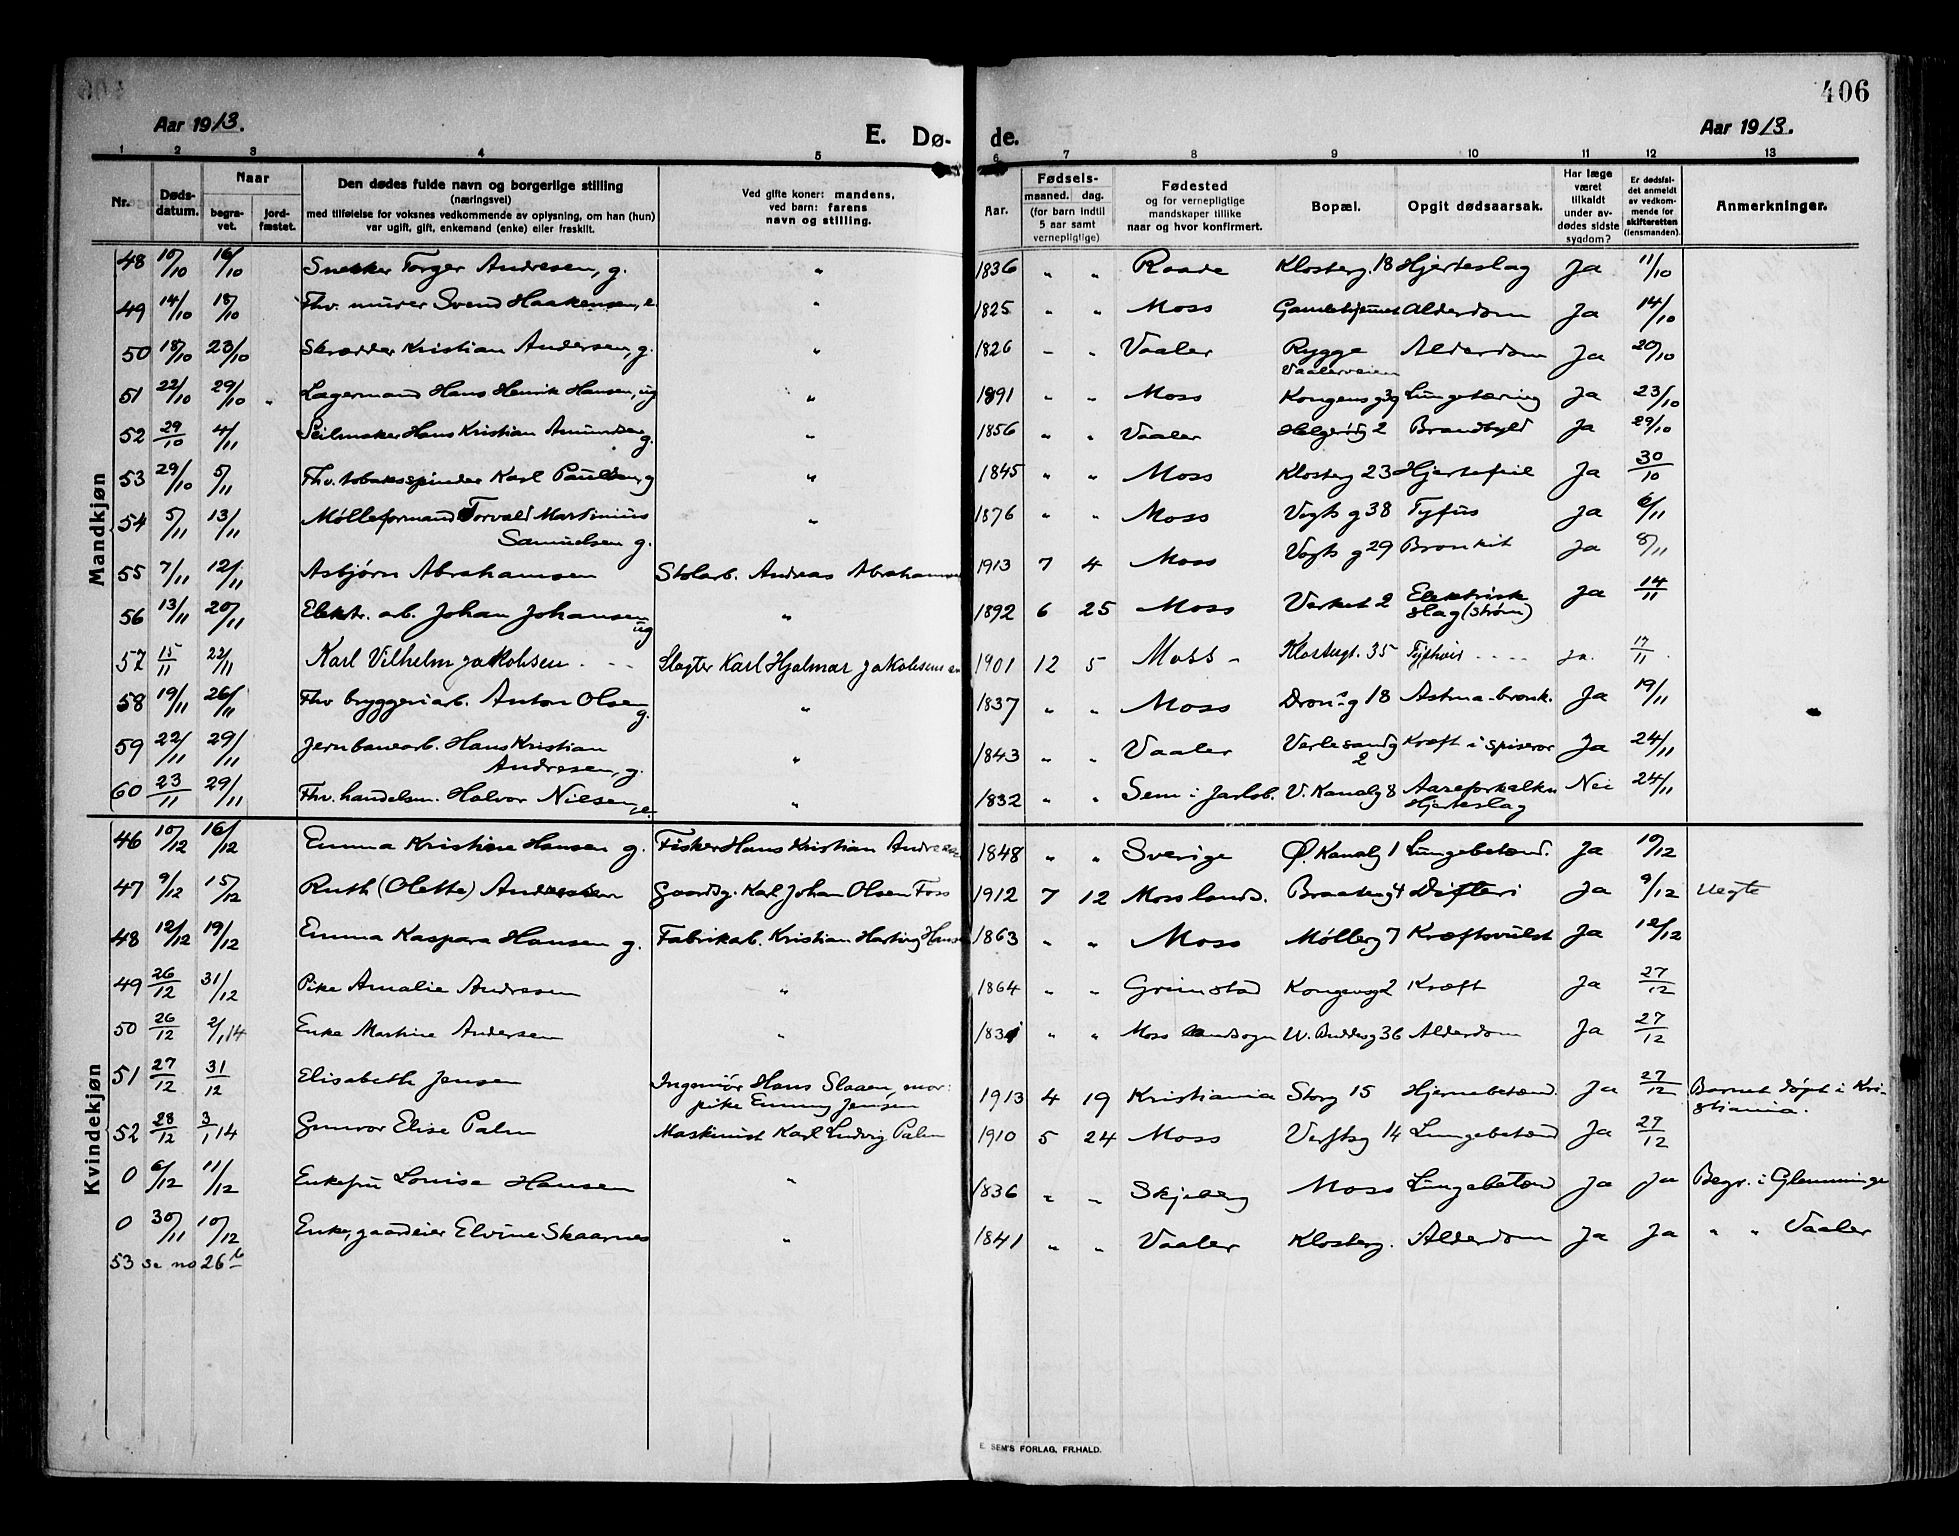 406
Aar 1913.
E. Dø- de.
Aar 1913.
1 2 3 4 5 6 7 8 9 10 11 12 13
Nr.
Døds-
datum.
Naar
begra-
vet.
jord-
fæstet.
Den dødes fulde navn og borgerlige stilling
(næringsvei)
med tilføielse for voksnes vedkommende av oplysning, om han (hun)
var ugift, gift, enkemand (enke) eller fraskilt.
Ved gifte koner: mandens,
ved barn: farens
navn og stilling.
Aar.
Fødsels-
maaned. dag.
(for barn indtil
5 aar samt
vernepligtige)
Fødested
og for vernepligtige
mandskaper tillike
naar og hvor konfirmert.
Bopæl.
Opgit dødsaarsak.
Har læge
været
tilkaldt
under av-
dødes sidste
sygdom?
Er dødsfal-
det anmeldt
av vedkom-
mende for
skifteretten
(lensmanden).
Anmerkninger.
Mandkjøn
48 10/10 16/10 Snekker Torger Andresen, g. " 1836 " " Raade Klosterg. 18 Hjerteslag Ja 11/10
49 14/10 18/10 Fhv. murer Svend Haakensen, e. " 1825 " " Moss Gamlehjemmet Alderdom Ja 14/10
50 18/10 23/10 Skrædder Kristian Andersen, g. " 1826 " " Vaaler Rygge Alderdom Ja 20/10
Vaalerveien
51 22/10 29/10 " Lagermand Hans Henrik Hansen, ug " 1891 " " Moss Kongensg 39 Lungetæring Ja 23/10
52 29/10 4/11 Seilmaker Hans Kristian Amundsen g. " 1856 " " Vaaler Helgerødg 2 Brandbyld Ja 29/10
53 29/10 5/11 Fhv. tobaksspinder Karl Paulsen, g " 1845 " " Moss Klosterg 23 Hjertefeil Ja 30/10
54 5/11 13/11 Mølleformand Torvald Martinius " 1876 " " Moss Vogts g 38 Tyfus Ja 6/11
Samuelsen g.
55 7/11 12/11 Asbjørn Abrahamsen Stolarb. Andreas Abrahamsen 1913 7 4 Moss Vogts g 29 Bronkit Ja 8/11
56 13/11 20/11 Elektr. arb. Johan Johansen ug " 1892 6 25 Moss Verket 2 Elektrisk Ja 14/11
slag (strøm)
57 15/11 22/11 Karl Vilhelm Jakobsen Slagter Karl Hjalmar Jakobsen 1901 12 5 Moss - Klostergt. 35 ja. 17/11
58 19/11 26/11 Fhv bryggeriarb. Anton Olsen g. " 1837 " " Moss Dron.s g 18 Astma-bronk. Ja 19/11
59 22/11 29/11 Jernbanearb. Hans Kristian " 1843 " " Vaaler Værlesandg Kræft i spiserør Ja 24/11
Andresen, g. 2
60 23/11 29/11 Fhv. handelsm. Halvor Nilsen, e. " 1832 " " Sem i Jarlsb. V. Kanalg 8 Aareforkalkn Nei 24/11
Hjerteslag
Kvindekjøn
46 10/12 16/12 Emma Kristine Hansen g. Fisker Hans Kristian 1848 " " Sverige Ø. Kanalg 1 Lungebetænd. Ja 10/12
47 9/12 15/12 Ruth (Olette) Andersen Gaardsg. Karl Johan Olsen Foss 1912 7 12 Moss lands. Difteri Ja 9/12 Uegte
48 12/12 19/12 Emma Kaspara Hansen g. Fabrikarb. Kristian Hartvig Hansen 1863 " " Moss Møllerg 7 Kræftsvulst Ja 12/12
49 26/12 31/12 Pike Amalie Andresen " 1864 " " Grimstad Kongensg 2 Kræft Ja 27/12
50 26/12 2/1 14 Enke Martine Andersen " 1831 " " Moss landsogn 36 Alderdom Ja 27/12
51 27/12 31/12 Elisabeth Jensen Ingeniør Hans Slaaen, mor: 1913 4 19 Kristiania Storg 15 Hjernebetænd. Ja 27/12 Barnet døpt i Kri-
pike Emmy Jensen stiania.
52 28/12 3/1 14 Gunvor Elise Palm Maskinist Karl Ludvig Palm 1910 5 24 Moss Verftsg 14 Lungebetænd Ja 29/12
0 6/12 11/12 Enkefru Louise Hansen " 1836 " " Skjeberg Moss Lungebetænd Ja Ja Begr. i Glemminge
0 30/11 10/12 Enke, gaardeier Elvine Skaarnes " 1841 " " Vaaler Klosterg. Alderdom Ja Ja " " Vaaler
53 se no 26 b
E. SEM'S FORLAG, FR.HALD.